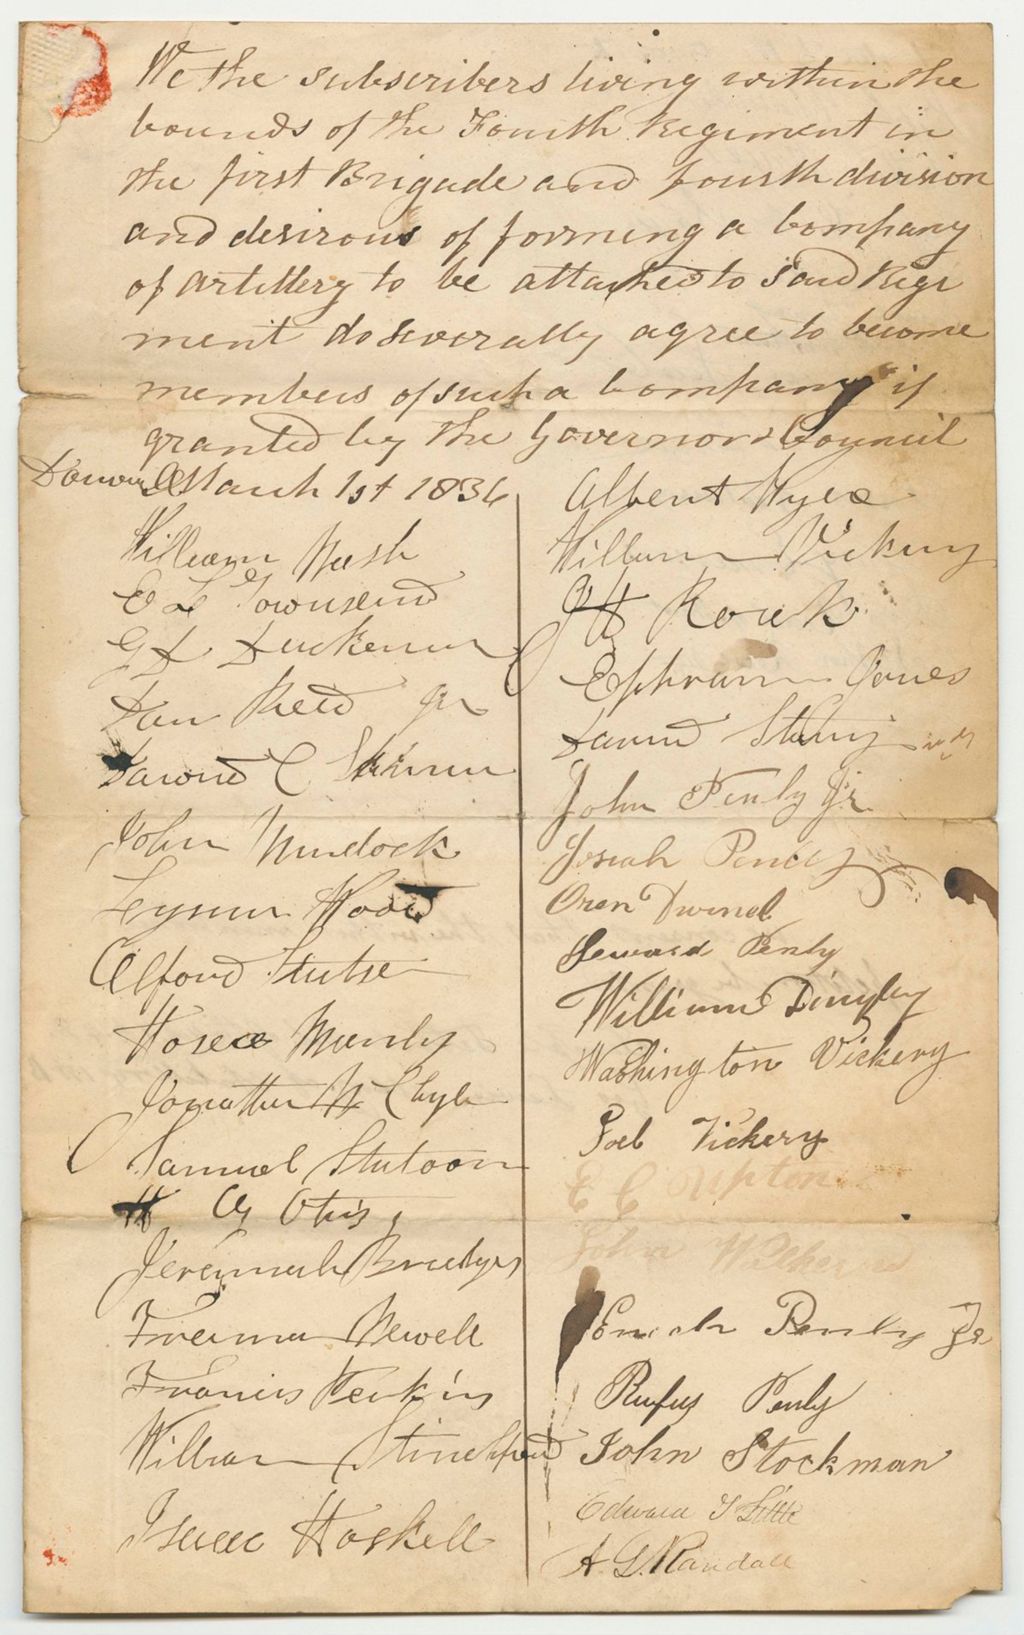 We the subscribers living within the
bounds of the Fourth Regiment in
the first Brigade and fourth division
and desirous of forming a Company
of Artillery to be attached to said Regi
ment do severally agree to become
members of such a Company if
granted by the Governor & Council
March 1st 1836
William Nash
E L Townsend
G L
Dan Reed Jr
David C
John Murdock
Wood
Alford
Hosea
Jonathan
Samuel Stetson
H G Otis
Jeremiah
Freeman Newell
Francis Perkins
William Stinchfield
Isaac Haskell
Albert
William Vickery
J H
Ephraim Jones
David
John Penly Jr
Josiah Penly
Oren Dwinel
Seward Penly
William Dingley
Washington Vickery
Joel Vickery
E C Upton
John
Enoch Penly Jr
Rufus Penly
John Stockman
Edward T Little
A. G. Randall